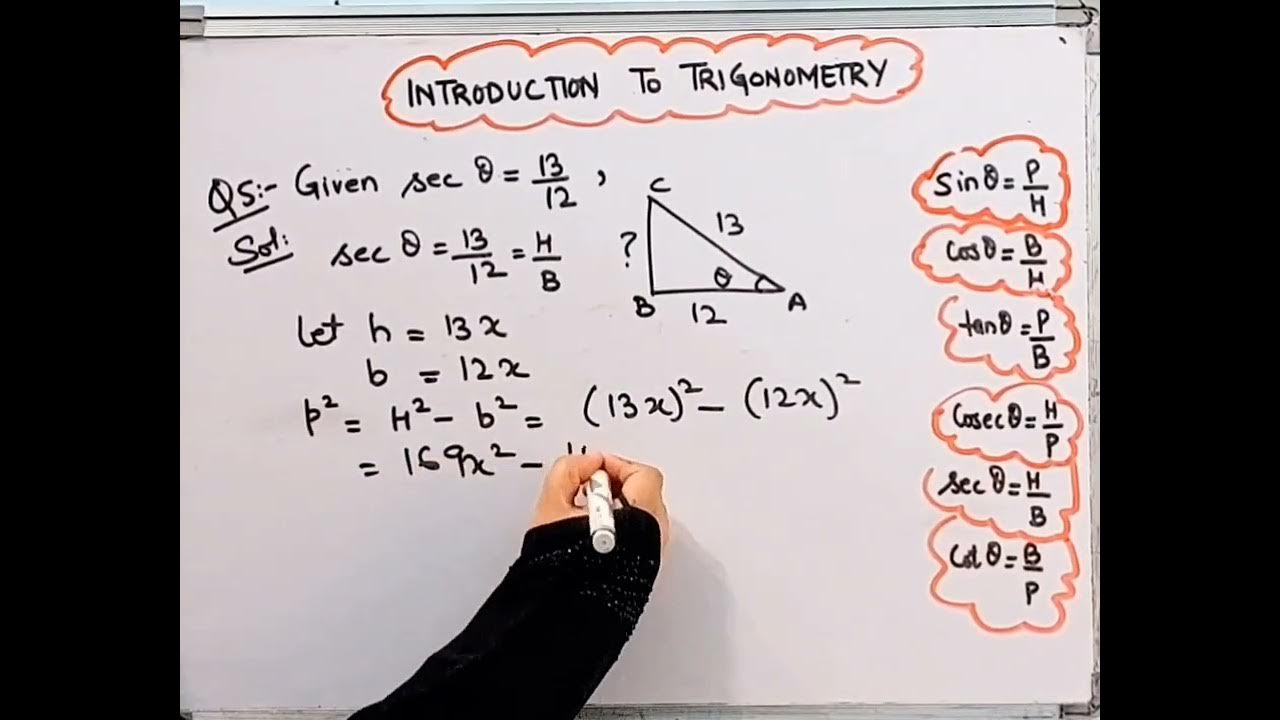 INTRODUCTION TO TRIGONOMETRY
Q5:- Given sec θ = 13/12 ,
Sol: sec θ = 13/12 = H/B
let h = 13x
b = 12x
p² = H² - b² = (13x)² - (12x)²
= 169x² -
C
?
13
θ
B
12
A
Sinθ = P/H
Cosθ = B/H
tanθ = P/B
Cosecθ = H/P
sec θ = H/B
Cotθ = B/P